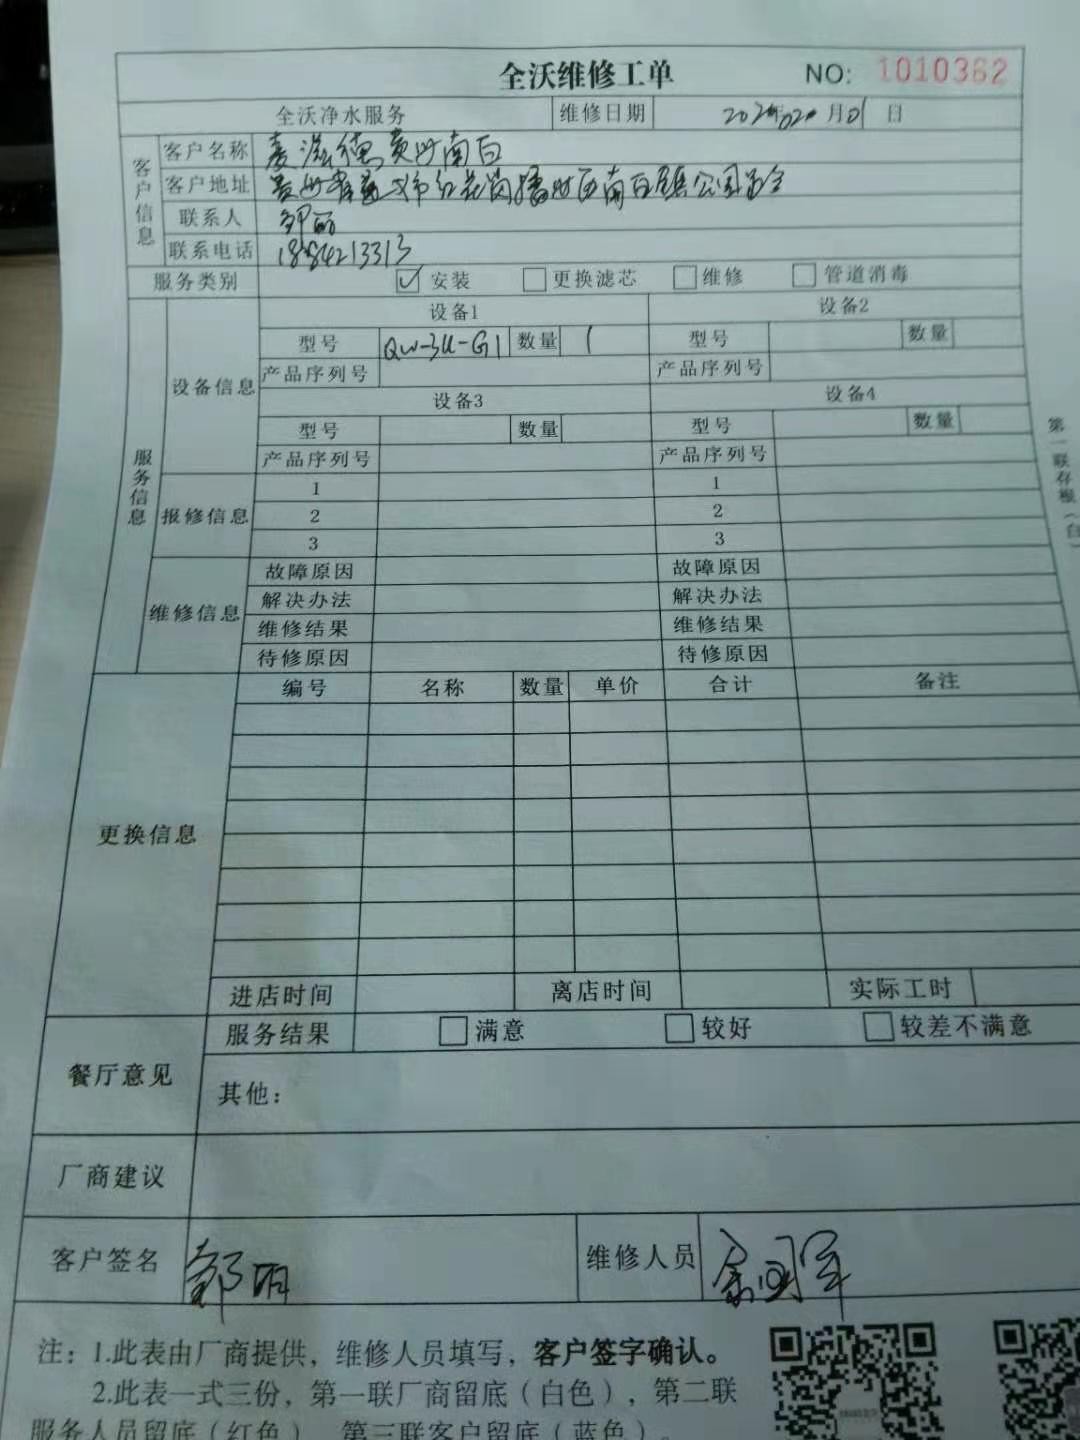 全沃维修工单 NO: 1010362
全沃净水服务 维修日期 月01日
客户信息
客户名称 贵州南白
客户地址 贵州省 红花岗播州区南白镇公园
联系人 邹丽
联系电话 1884213313
服务类别 ☑安装 □更换滤芯 □维修 □管道消毒
服务信息
设备信息
设备1 设备2
型号 QW-3U-G1 数量 1 型号 数量
产品序列号 产品序列号
设备3 设备4
型号 数量 型号 数量
产品序列号 产品序列号
报修信息
1 1
2 2
3 3
维修信息
故障原因 故障原因
解决办法 解决办法
维修结果 维修结果
待修原因 待修原因
更换信息
编号 名称 数量 单价 合计 备注
进店时间 离店时间 实际工时
餐厅意见
服务结果 □满意 □较好 □较差不满意
其他：
厂商建议
客户签名 邹丽 维修人员 余国军
注：1.此表由厂商提供，维修人员填写，客户签字确认。
2.此表一式三份，第一联厂商留底（白色），第二联
服务人员留底（红色），第三联客户留底（蓝色）。
第一联存根（白）